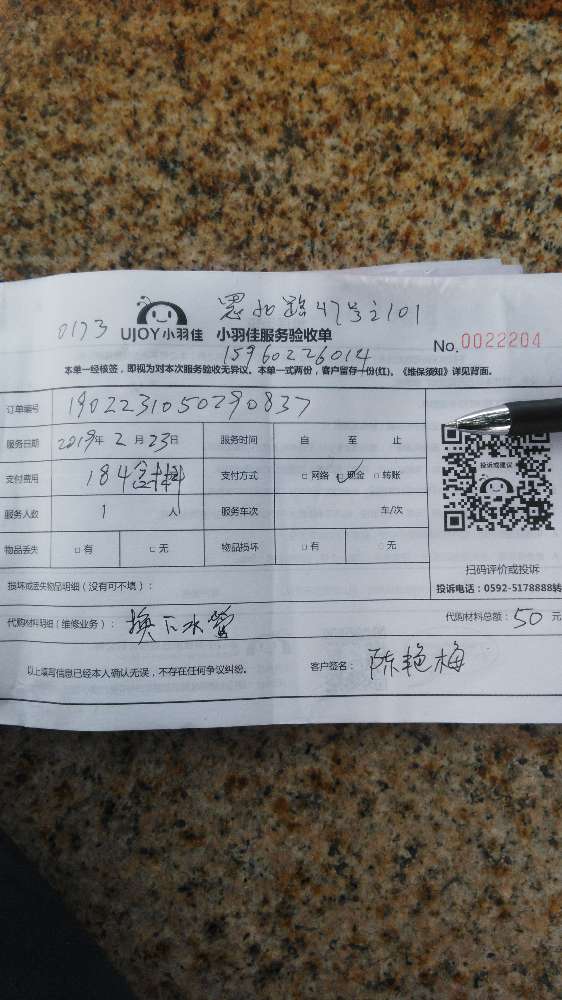 恩如路47号之101
0173 UJOY小羽佳 小羽佳服务验收单
15960226014 No.0022204
本单一经核签，即视为对本次服务验收无异议。本单一式两份，客户留存一份(红)。《维保须知》详见背面。
订单编号 1902231050290837
服务日期 2019年 2 月 23日 服务时间 自 至 止
支付费用 184含材料 支付方式 □网络 □现金 □转账
服务人数 1 人 服务车次 车/次
物品丢失 □有 □无 物品损坏 □有 □无
投诉或建议
扫码评价或投诉
投诉电话：0592-5178888转
损坏或丢失物品明细（没有可不填）：
代购材料明细（维修业务）： 换下水管 代购材料总额：50 元
以上填写信息已经本人确认无误，不存在任何争议纠纷。 客户签名： 陈艳梅